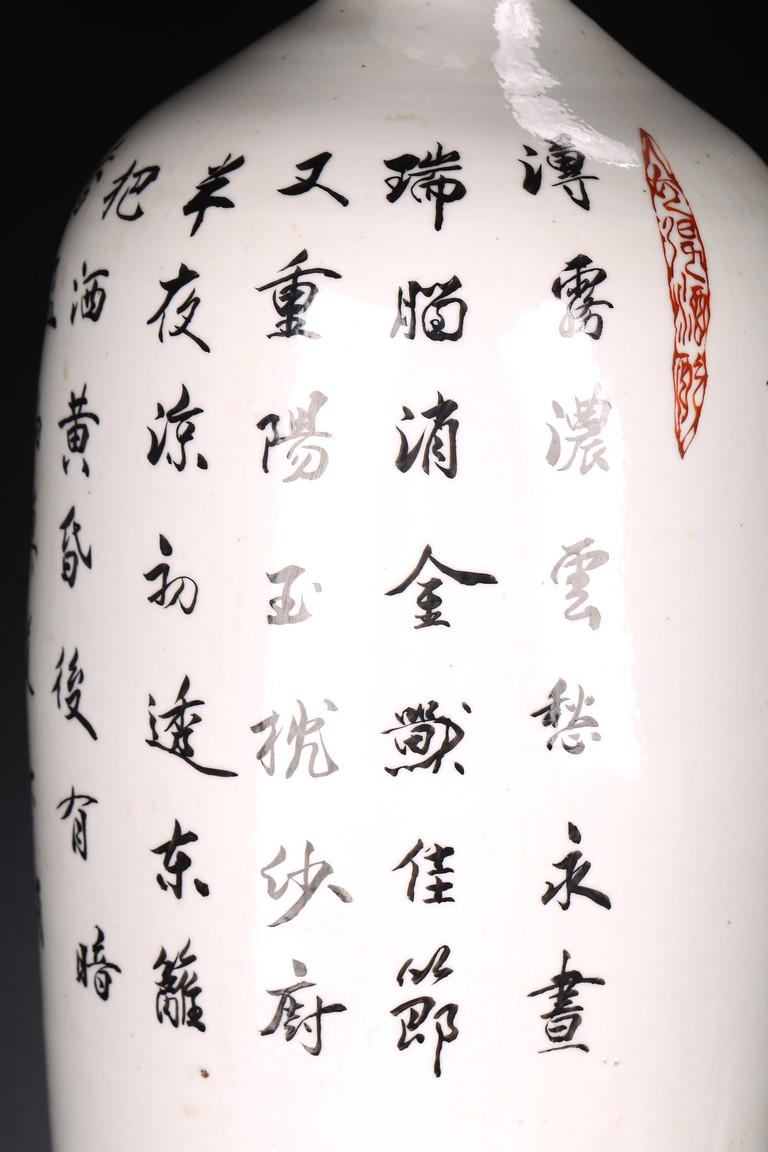 薄霧濃雲愁永晝
瑞腦消金獸佳節
又重陽玉枕紗廚
半夜涼初透东籬
把酒黃昏後有暗